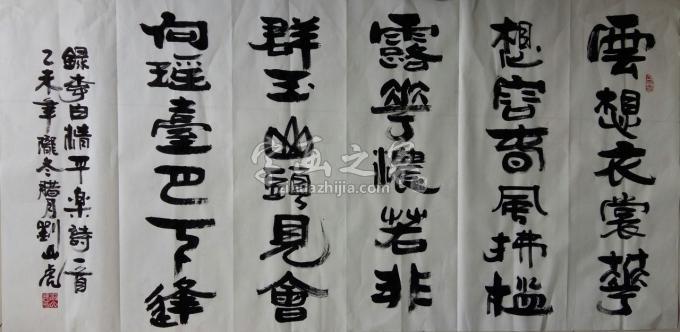 雲想衣裳華
想容春風拂檻
露華濃若非
群玉山頭見會
向瑶臺月下逢
錄李白清平樂詩一首
乙未年隆冬腊月劉山虎
字画之家
zihuazhijia.com